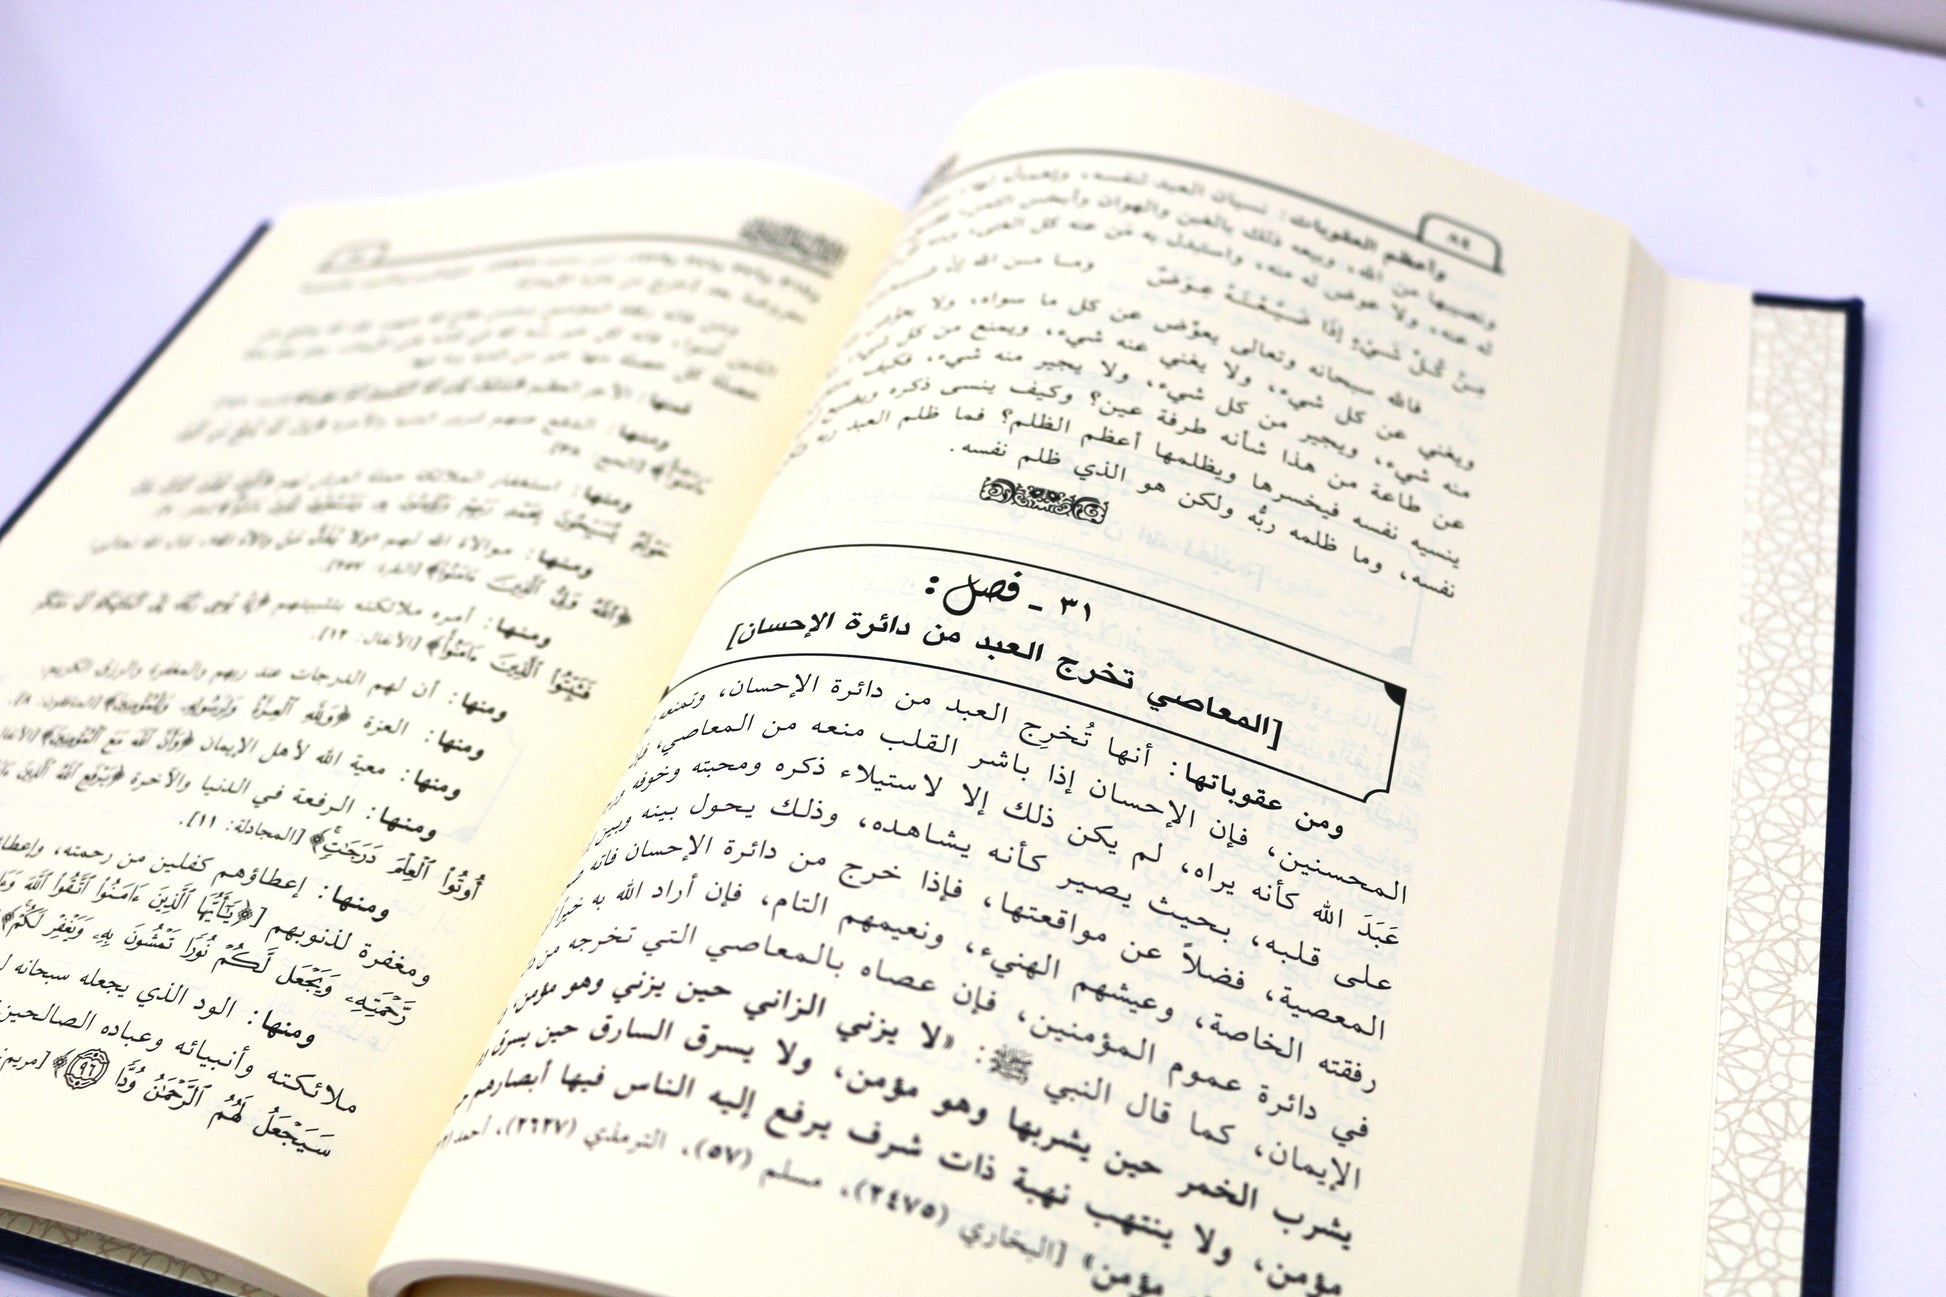 ٨٤
وأعظم العقوبات: نسيان العبد لنفسه، وإهماله لها،
ونصيبها من الله، وبيعه ذلك بالغبن والهوان وأبخس الثمن،
له عنه، ولا عوض له منه، واستبدل به من عنه كل الغنى،
مِنْ كُلِّ شَيْءٍ إذَا ضَيَّعْتَهُ عِوَضٌ وما من الله إن
فالله سبحانه وتعالى يعوِّض عن كل ما سواه، ولا يعوِّض
ويغني عن كل شيء، ولا يغني عنه شيء، ويمنع من كل شيء،
منه شيء، ويجير من كل شيء، ولا يجير منه شيء، فكيف
عن طاعة من هذا شأنه طرفة عين؟ وكيف ينسى ذكره ويضيع
ينسيه نفسه فيخسرها ويظلمها أعظم الظلم؟ فما ظلم العبد ربه
نفسه، وما ظلمه ربُّه ولكن هو الذي ظلم نفسه.
٣١ - فصل:
[المعاصي تخرج العبد من دائرة الإحسان]
ومن عقوباتها: أنها تُخرِج العبد من دائرة الإحسان، وتمنعه
المحسنين، فإن الإحسان إذا باشر القلب منعه من المعاصي،
عَبَدَ الله كأنه يراه، لم يكن ذلك إلا لاستيلاء ذكره ومحبته وخوفه
على قلبه، بحيث يصير كأنه يشاهده، وذلك يحول بينه وبين
المعصية، فضلاً عن مواقعتها، فإذا خرج من دائرة الإحسان فاته
رفقته الخاصة، وعيشهم الهنيء، ونعيمهم التام، فإن أراد الله به خيراً
في دائرة عموم المؤمنين، فإن عصاه بالمعاصي التي تخرجه من
الإيمان، كما قال النبي ﷺ: «لا يزني الزاني حين يزني وهو مؤمن،
يشرب الخمر حين يشربها وهو مؤمن، ولا يسرق السارق حين يسرق
مؤمن، ولا ينتهب نهبة ذات شرف يرفع إليه الناس فيها أبصارهم
مؤمن» [البخاري (٢٤٧٥)، مسلم (٥٧)، الترمذي (٢٦٢٧)، أحمد
فمنها: الأجر العظيم
ومنها: الدفع عنهم شرور الدنيا والآخرة
ءَامَنُوٓا۟﴾ [الحج: ٣٨].
ومنها: استغفار الملائكة حملة العرش لهم
حَوْلَهُۥ يُسَبِّحُونَ بِحَمْدِ رَبِّهِمْ وَيُؤْمِنُونَ بِهِۦ وَيَسْتَغْفِرُونَ لِلَّذِينَ ءَامَنُوا۟﴾
ومنها: موالاة الله لهم، قال الله تعالى:
﴿ٱللَّهُ وَلِيُّ ٱلَّذِينَ ءَامَنُوا۟﴾ [البقرة: ٢٥٧].
ومنها: أمره ملائكته بتثبيتهم
فَثَبِّتُوا۟ ٱلَّذِينَ ءَامَنُوا۟﴾ [الأنفال: ١٢].
ومنها: أن لهم الدرجات عند ربهم والمغفرة والرزق الكريم.
ومنها: العزة ﴿وَلِلَّهِ ٱلْعِزَّةُ وَلِرَسُولِهِۦ وَلِلْمُؤْمِنِينَ﴾ [المنافقون: ٨].
ومنها: معية الله لأهل الإيمان ﴿وَأَنَّ ٱللَّهَ مَعَ ٱلْمُؤْمِنِينَ﴾
ومنها: الرفعة في الدنيا والآخرة ﴿يَرْفَعِ ٱللَّهُ ٱلَّذِينَ
أُوتُوا۟ ٱلْعِلْمَ دَرَجَٰتٍ﴾ [المجادلة: ١١].
ومنها: إعطاؤهم كفلين من رحمته،
ومغفرة لذنوبهم [﴿يَٰٓأَيُّهَا ٱلَّذِينَ ءَامَنُوا۟ ٱتَّقُوا۟ ٱللَّهَ
رَّحْمَتِهِۦ وَيَجْعَل لَّكُمْ نُورًا تَمْشُونَ بِهِۦ وَيَغْفِرْ لَكُمْ﴾
ومنها: الود الذي يجعله سبحانه
ملائكته وأنبيائه وعباده الصالحين
سَيَجْعَلُ لَهُمُ ٱلرَّحْمَٰنُ وُدًّا ٩٦﴾ [مريم: